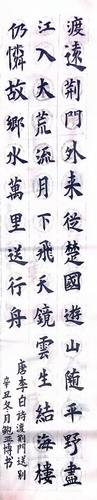 渡遠荆門外来從楚國遊山隨平野盡
江入大荒流月下飛天鏡雲生結海樓
仍憐故鄉水萬里送行舟
唐李白詩渡荆門送别
辛丑冬月